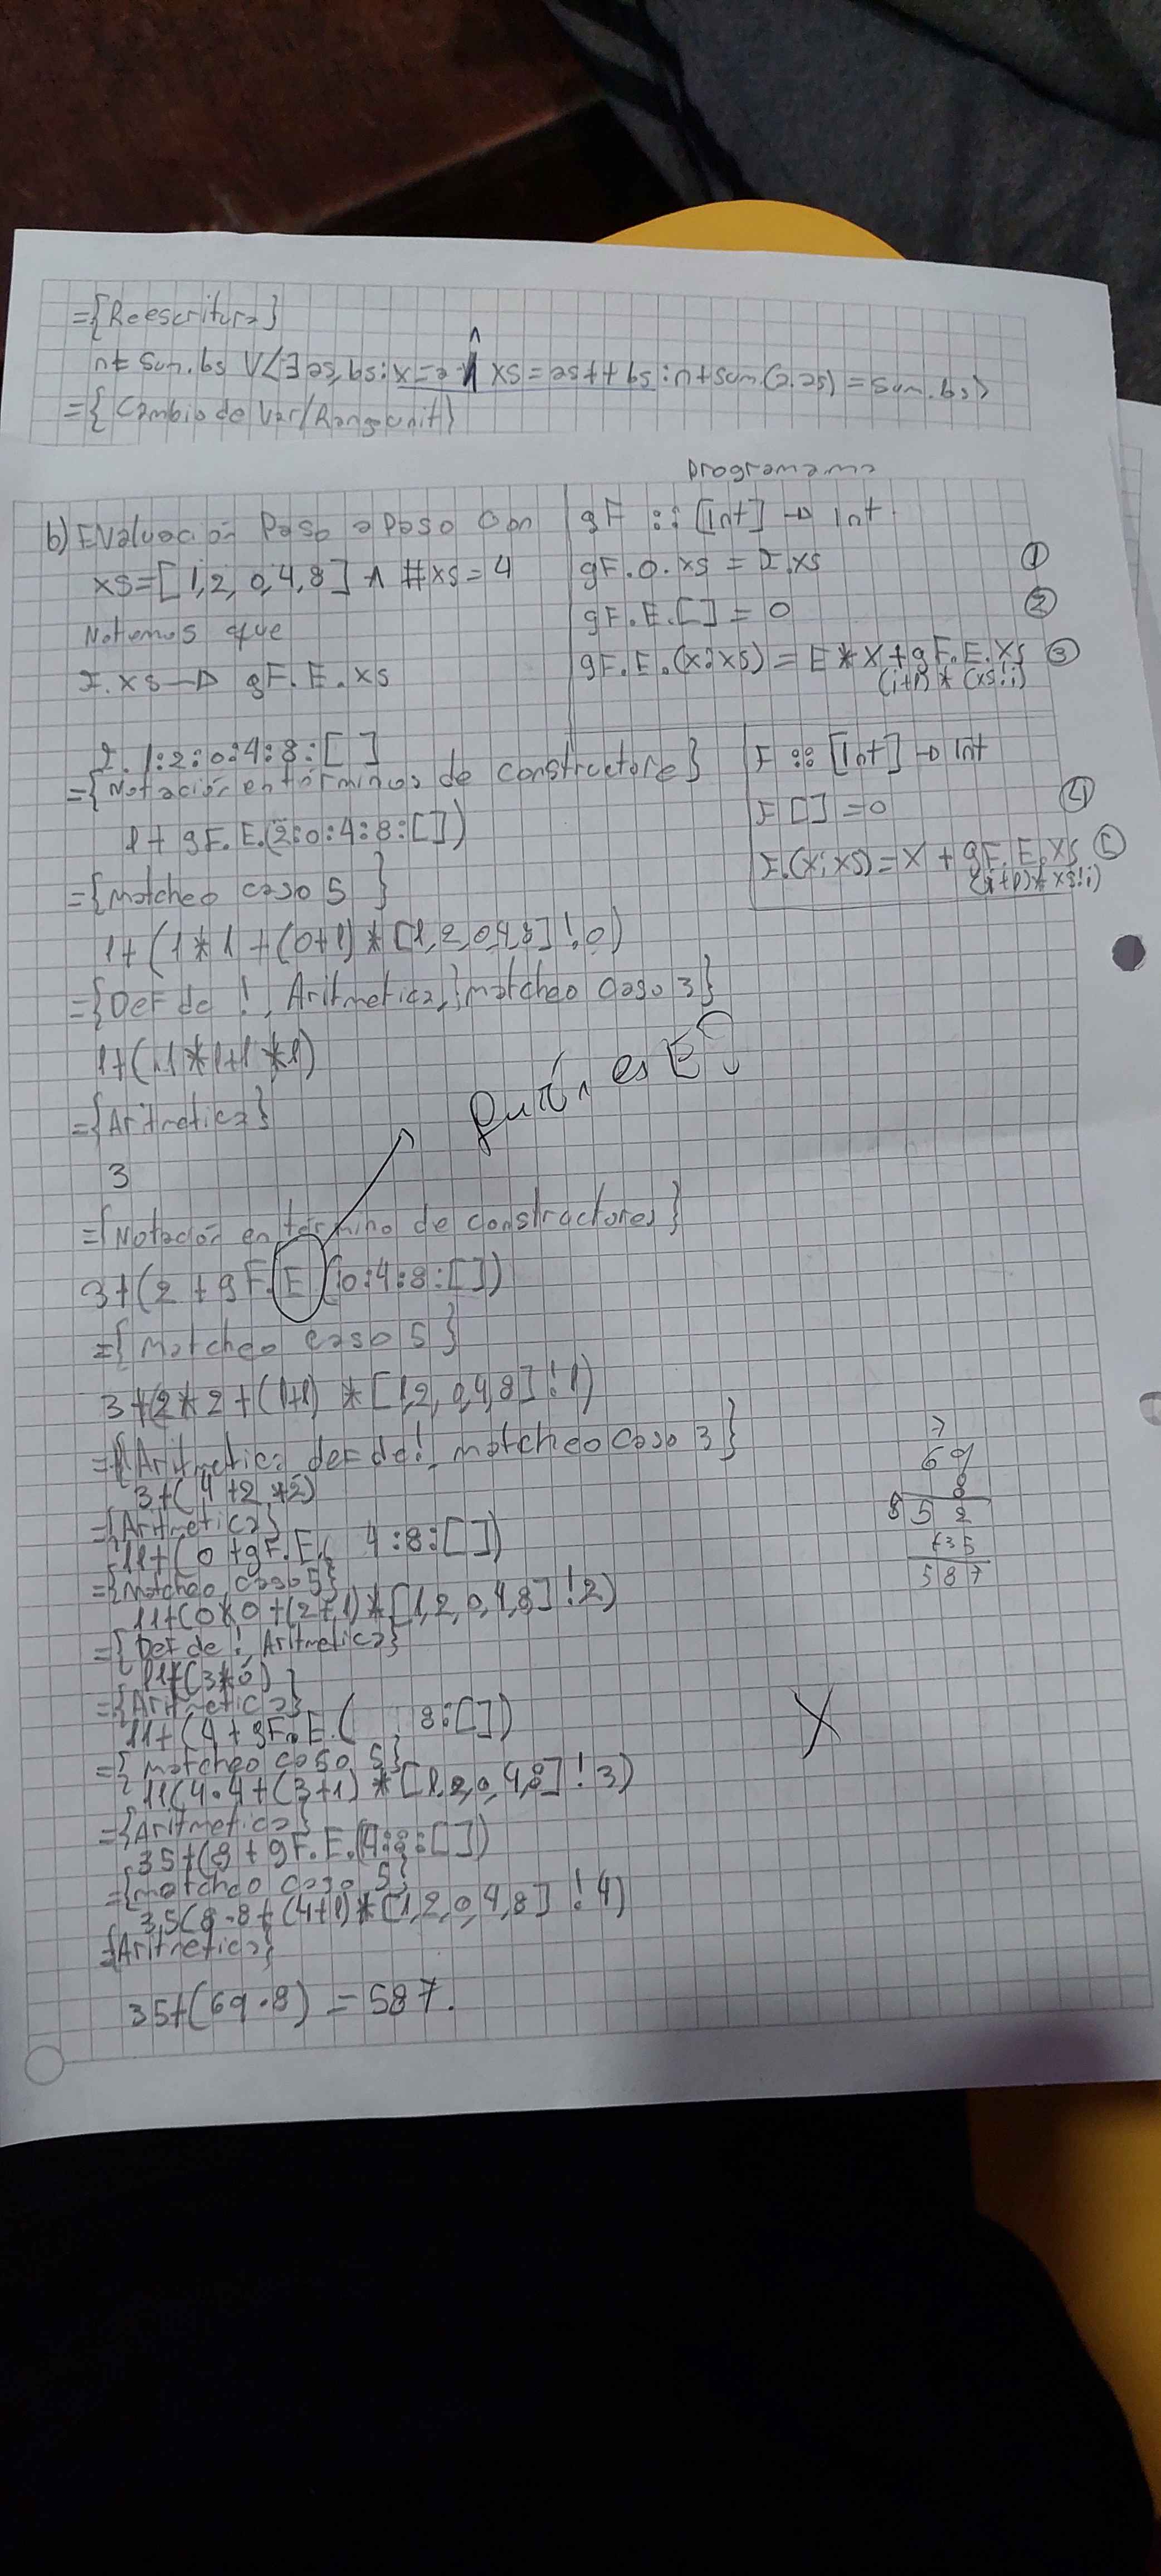 ={Reescritura}
={Cambio de Var/Rango unit}
programama
b) Evaluación Paso a Paso Con
xs=[1,2,0,4,8] ∧ #xs=4
Notemos que
F.xs → gF.E.xs
gF :: [Int] → Int
gF.0.xs = F.xs ①
gF.E.[] = 0 ②
gF.E.(x:xs) = E*x+gF.E.xs ③
(i+1)*(xs!i)
F :: [Int] → Int
F[]=0 ④
F.(x:xs)=x+gF.E.xs ⑤
(i+1)*xs!i)
F.1:2:0:4:8:[]
={Notación en términos de constructore}
1+gF.E.(2:0:4:8:[])
={matcheo caso 5}
1+(1*1+(0+1)*[1,2,0,4,8]!0)
={Def de !, Aritmetica, matcheo caso 3}
1+(1*1+1*1)
={Aritmetica}
3
Quién es E?
={Notación en termino de constructores}
3+(2+gF.E(0:4:8:[])
={Matcheo caso 5}
3+(2*2+(1+1)*[1,2,0,4,8]!1)
={Aritmetica def de! matcheo caso 3}
3+(4+2*2)
={Aritmetica}
11+(0+gF.E.( 4:8:[])
={Matcheo caso 5}
11+(0*0+(2+1)*[1,2,0,4,8]!2)
={Def de !, Aritmetica}
11+(3*0)
={Aritmetica}
11+(4+gF.E.( 8:[])
={matcheo caso 5}
11(4.4+(3+1)*[1,2,0,4,8]!3)
={Aritmetica}
35+(8+gF.E.(4:8:[])
={matcheo caso 5}
35(8.8+(4+1)*[1,2,0,4,8]!4)
={Aritmetica}
35+(69.8)=587.
7
69
8
552
+35
587
X